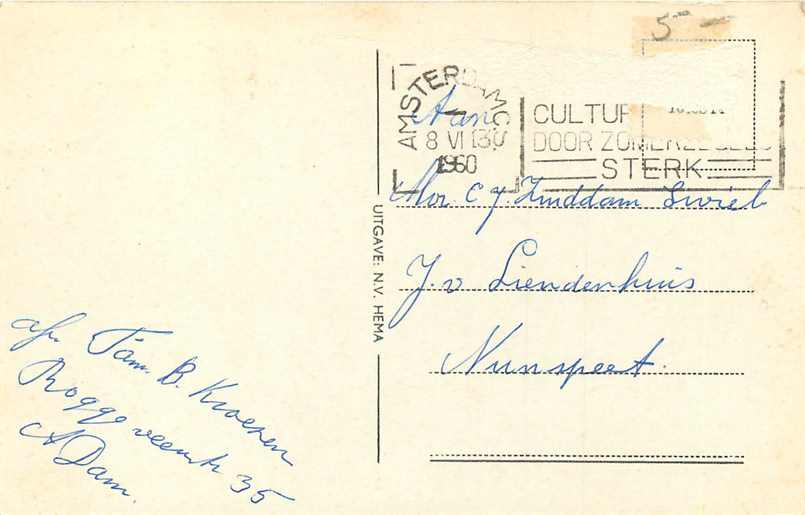 5
AMSTERDAM C.S.
8 VI 13
1960
CULTUR
DOOR ZOMERZEGELS
STERK
Aan
C J. Zuiddam
J. v Liendenhuis
Nunspeet.
UITGAVE: N.V. HEMA
af. Fam. B. Kroesen
Roggeveenstr 35
A Dam.